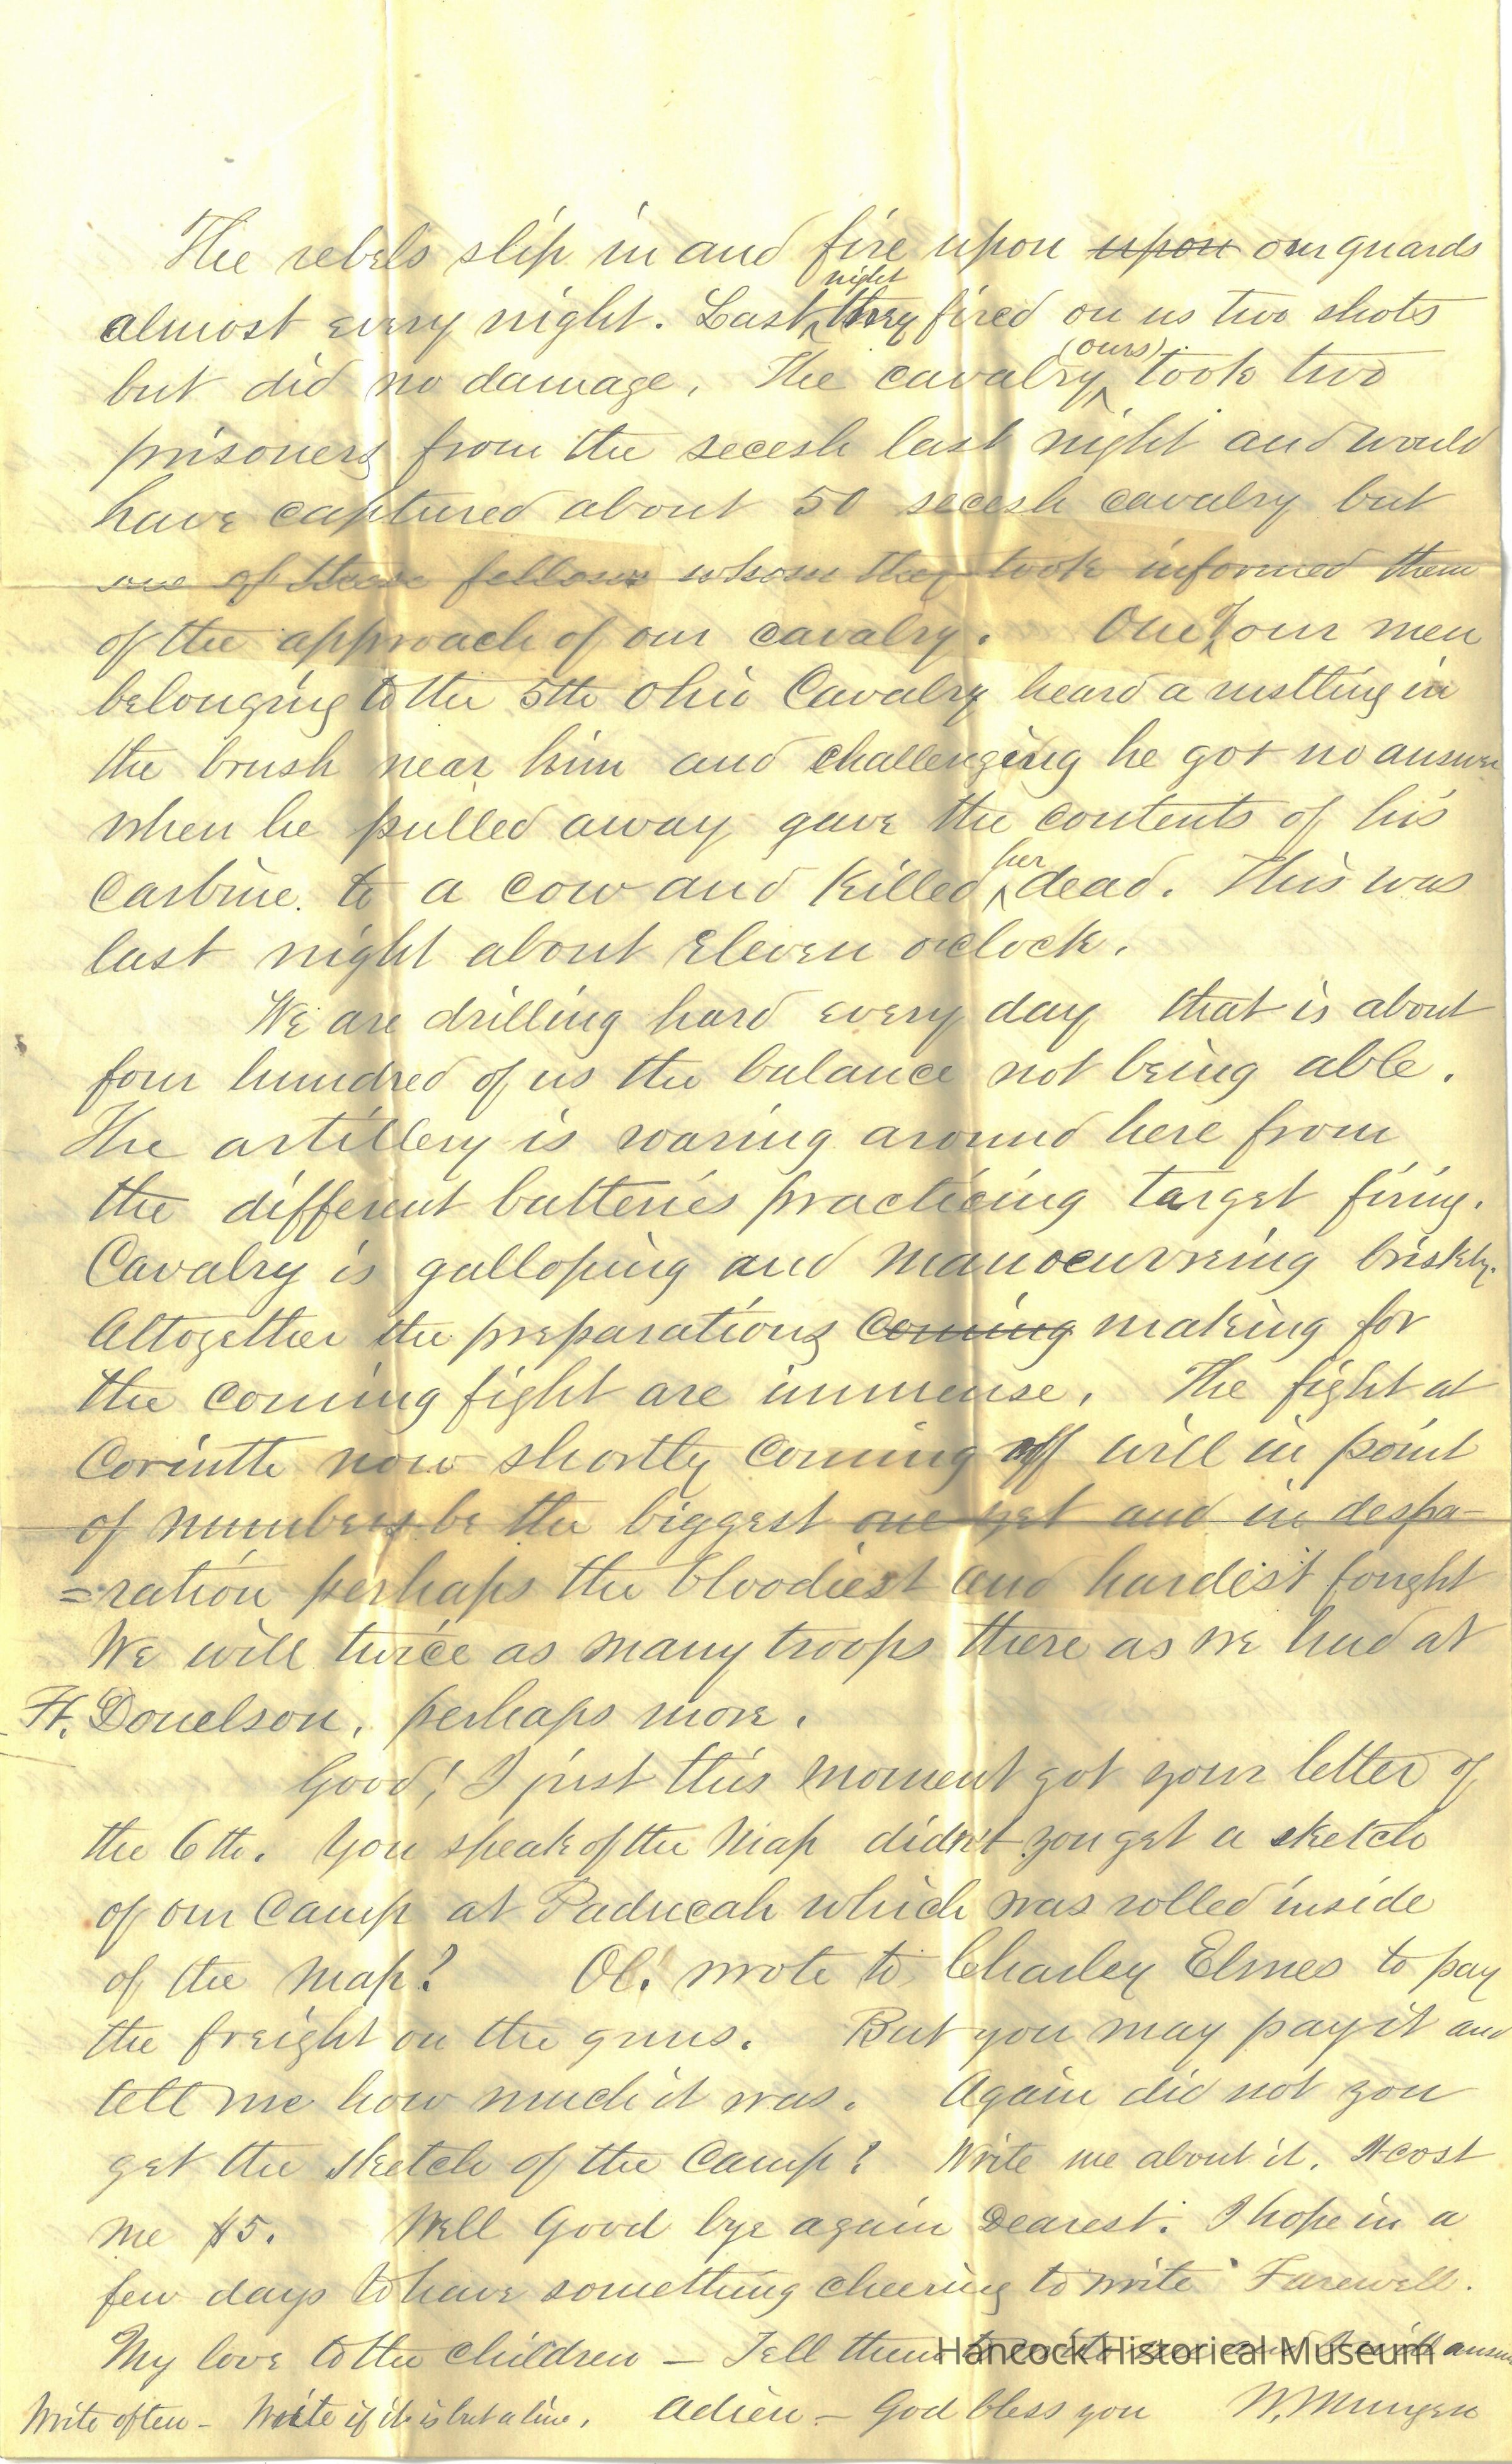 The rebels slip in and fire upon upon our guards
almost every night. Last night they fired on us two shots
but did no damage. The cavalry (ours) took two
prisoners from the secesh last night and would
have captured about 50 secesh cavalry but
one of these fellows whom they took informed them
of the approach of our cavalry. One of our men
belonging to the 5th Ohio Cavalry heard a rustling in
the brush near him and challenging he got no answer
when he pulled away gave the contents of his
Carbine. to a cow and killed her dead. This was
last night about Eleven oclock.
We are drilling hard every day that is about
four hundred of us the balance not being able.
The artillery is roaring around here from
the different batteries practicing target firing.
Cavalry is galloping and manoeuvreing briskly.
Altogether the preparations coming making for
the coming fight are immense. The fight at
Corinth now shortly coming off will in point
of numbers be the biggest one yet and in despa-
=ration perhaps the bloodiest and hardest fought
We will twice as many troops there as we had at
Ft. Donelson. perhaps more.
Good! I just this moment got your letter of
the 6th. You speak of the Map didn't you get a sketch
of our Camp at Paducah which was rolled inside
of the Map? Ol. wrote to Charley Elmes to pay
the freight on the guns. But you may pay it and
tell me how much it was. Again did not you
get the sketch of the Camp? Write me about it. It cost
me $5. Well Good bye again Dearest. I hope in a
few days to have something cheering to write Farewell.
My love to the children – Tell them
Hancock Historical Museum
Write often – Write if it is but a line. Adieu – God bless you W. Mungen